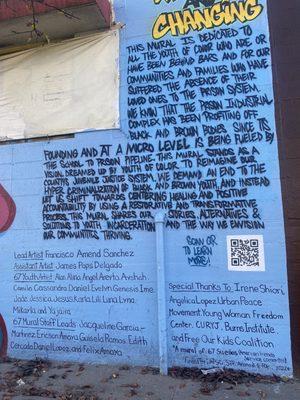 CHANGING
THIS MURAL IS DEDICATED TO
ALL THE YOUTH OF COLOR WHO ARE OR
HAVE BEEN BEHIND BARS AND FOR OUR
COMMUNITIES AND FAMILIES WHO HAVE
SUFFERED THE ABSENCE OF THEIR
LOVED ONES TO THE PRISON SYSTEM.
WE KNOW THAT THE PRISON INDUSTRIAL
COMPLEX HAS BEEN PROFITING OFF
BLACK AND BROWN BODIES SINCE ITS
FOUNDING AND AT A MICRO LEVEL IS BEING FUELED BY
THE SCHOOL TO PRISON PIPELINE. THIS MURAL STANDS AS A
VISION DREAMED UP BY YOUTH OF COLOR TO REIMAGINE OUR
COUNTYS JUVENILE JUSTICE SYSTEM. WE DEMAND AN END TO THE
HYPER CRIMINALIZATION OF BLACK AND BROWN YOUTH, AND INSTEAD
LET US SHIFT TOWARDS CENTERING HEALING AND POSITIVE
ACCOUNTABILITY BY USING A RESTORATIVE AND TRANSFORMATIVE
PROCESS. THIS MURAL SHARES OUR STORIES, ALTERNATIVES &
SOLUTIONS TO YOUTH INCARCERATION AND THE WAY WE ENVISION
OUR COMMUNITIES THRIVING.
SCAN OR
TO LEARN
MORE!
Lead Artist Francisco Amend Sanchez
Assistant Artist James Paps Delgado
67 Youth Artist Alan Alina Angel Aserta Avehah
Camila Cassandra Daniel Evelyn Genesis Ime
Jade Jessica Jesus Karla Lili Luna Lyna
Milkarla and Yajaira
67 Mural Staff Leads Jacqueline Garcia-
Martinez Ericson Amaya Guisela Ramos Edith
Cercado Daniel Lopez and Felix Amaya
Special Thanks To Irene Shiori,
Angelica Lopez Urban Peace
Movement Young Woman Freedom
Center, CURYJ, Burns Institute
and Free Our Kids Coalition
"A mural of 67 Sueños American Friends